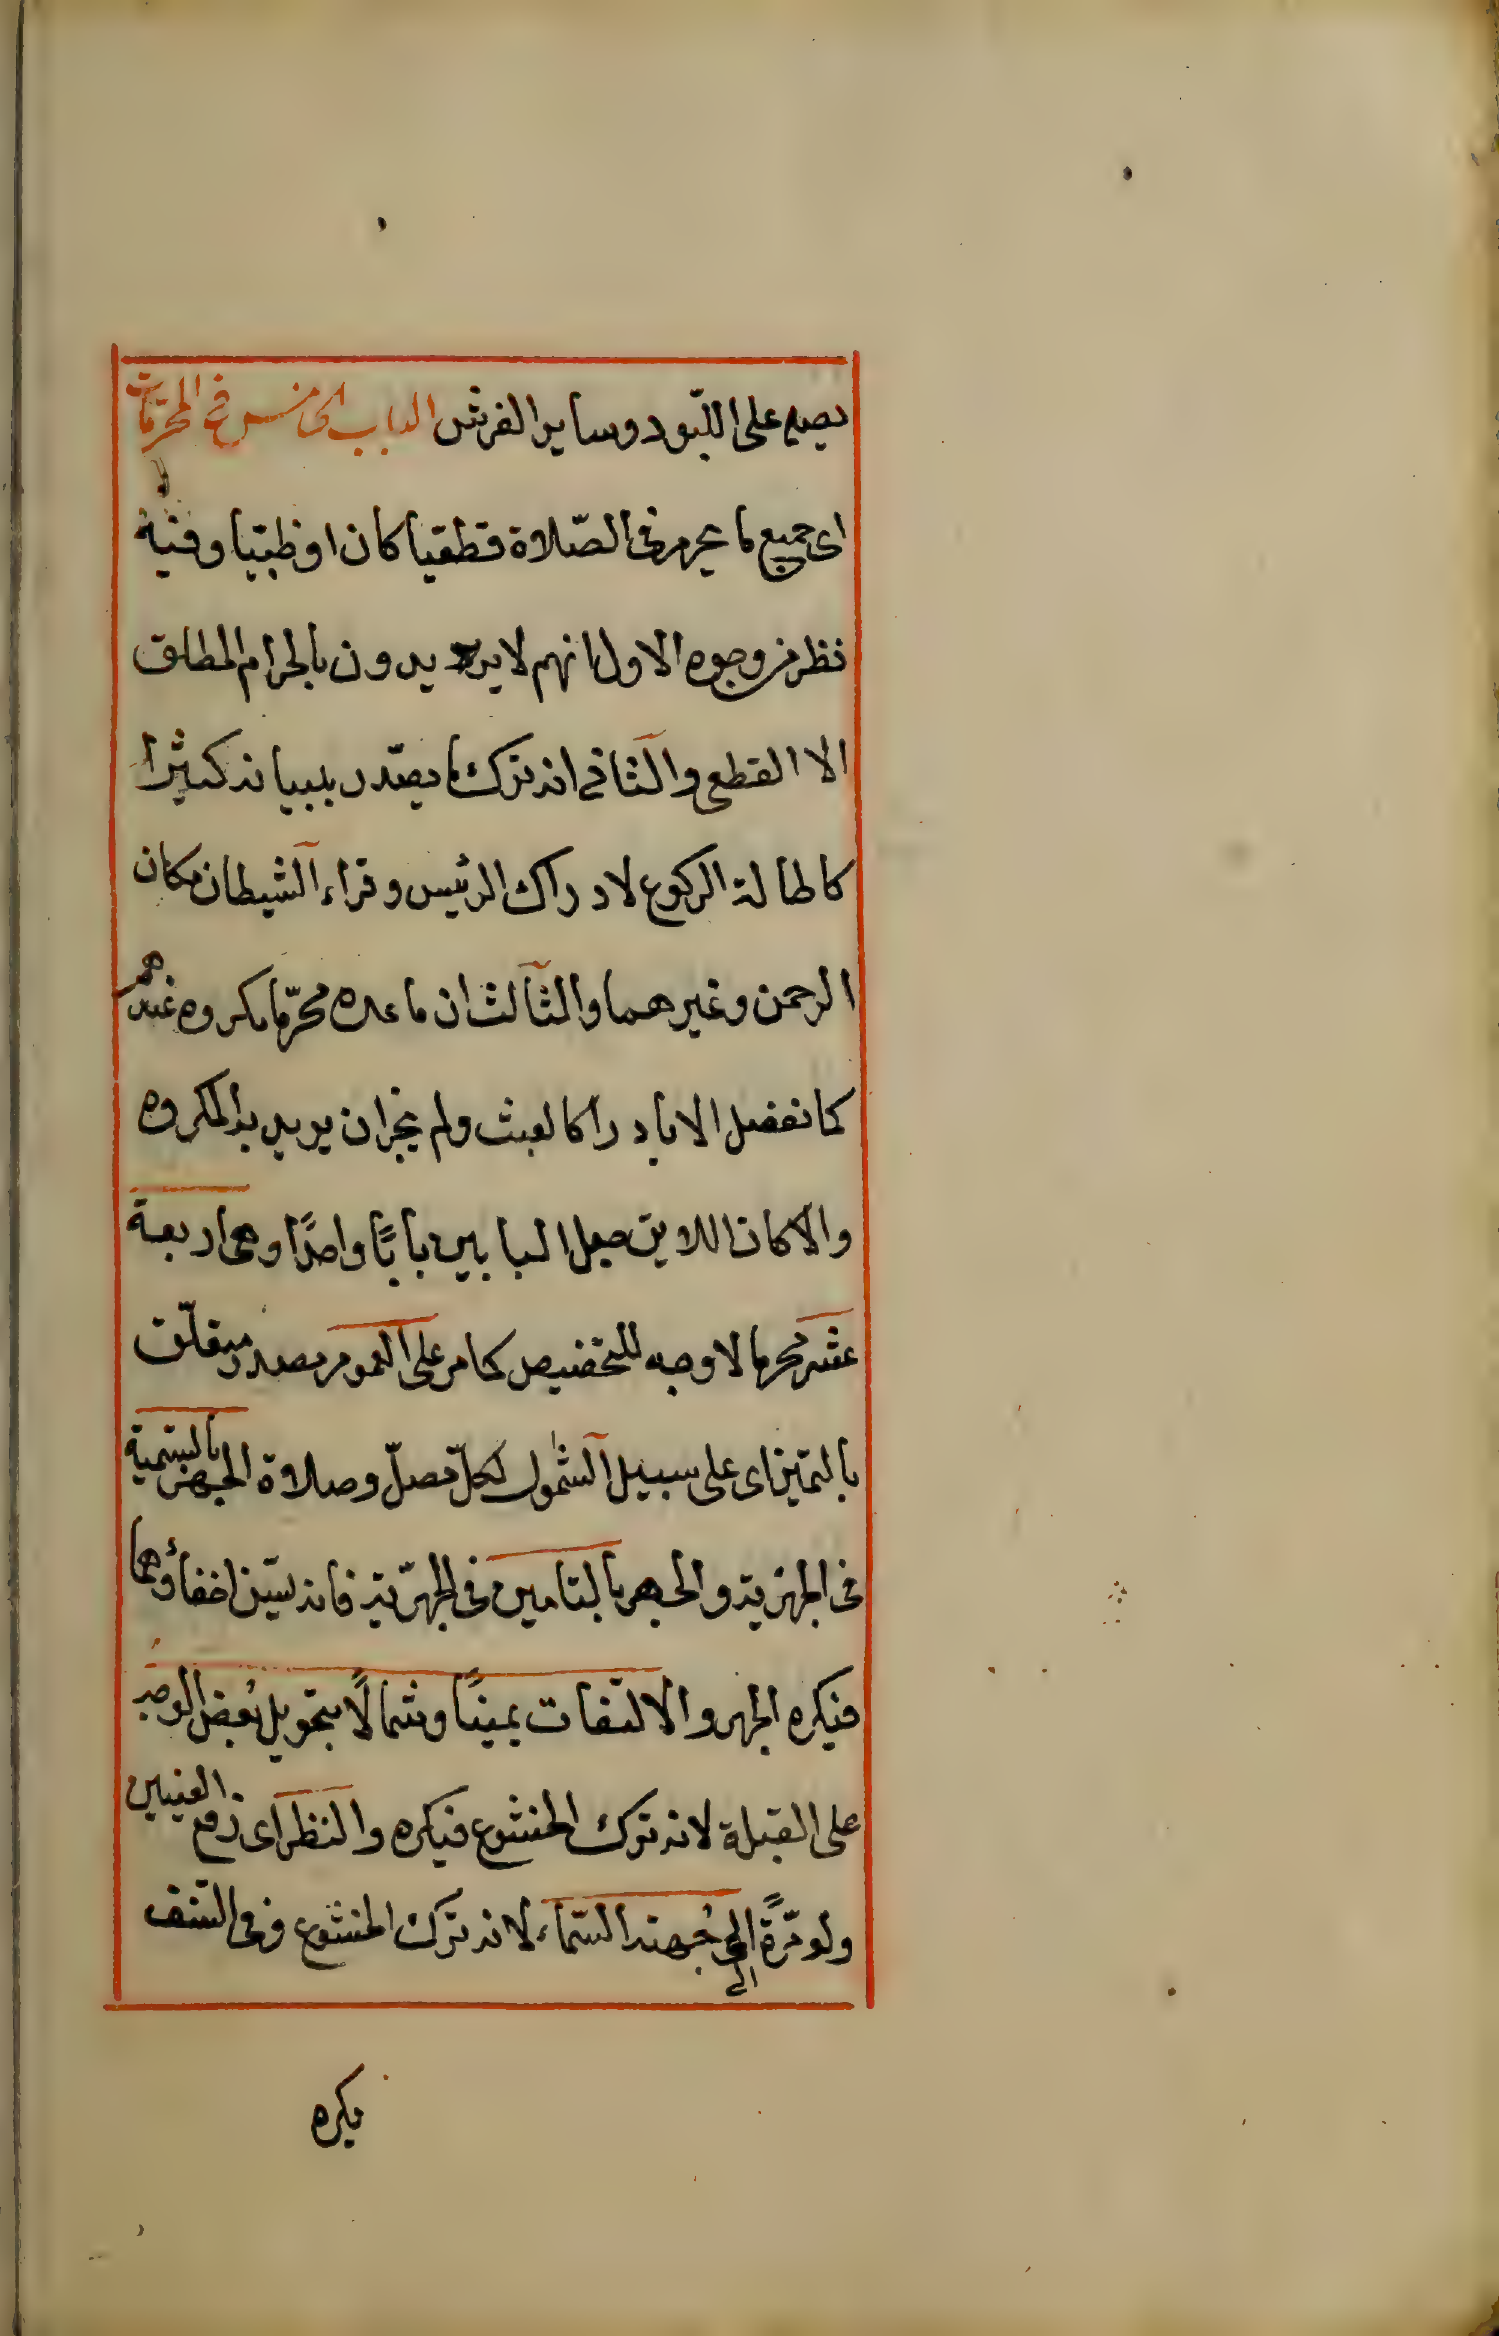 يصلي على اللبود وساير الفرش الباب الخامس في المحرمات
اى جميع ما يحرم في الصّلاة قطعيا كان او ظنيا وفيه
نظر من وجوه الاول انهم لا يريدون بالحرام المطلق
الا القطعي والثاني انه ترك ما يصدر ببيانه كثيرا
كاطالة الركوع لادراك الرئيس وقراءة الشيطان مكان
الرحمن وغيرهما والثالث ان ما عده محرّما مكروه عندهم
كما نفصل الا نادرا كالعبث ولم يجز ان يريد به المكروه
والا كان اللايق جعل البابين بابًا واحدًا وهي اربعة
عشر محرما لا وجه للتخصيص كما مر على العموم مصدر متعلّق
بالتميز اى على سبيل الشمول لكلّ مصلّ وصلاة الجهر بالتسمية
في الجهرية والجهر بالتامين في الجهرّية فانه يسّن اخفاؤهما
فيكره الجهر والالتفات يمينًا وشمالًا بتحويل بعض الوجه
على القبلة لانه ترك الخشوع فيكره والنظر اى رفع العينين
ولو مّرةً الى جهة السّماء لانه ترك الخشوع وفي التنف
يكره